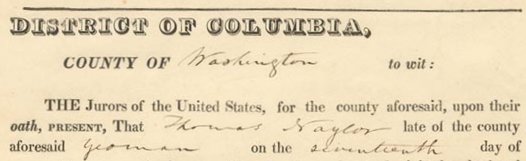 DISTRICT OF COLUMBIA,
COUNTY OF Washington to wit:
THE Jurors of the United States, for the county aforesaid, upon their
oath, PRESENT, That Thomas Naylor late of the county
aforesaid yeoman on the seventeenth day of